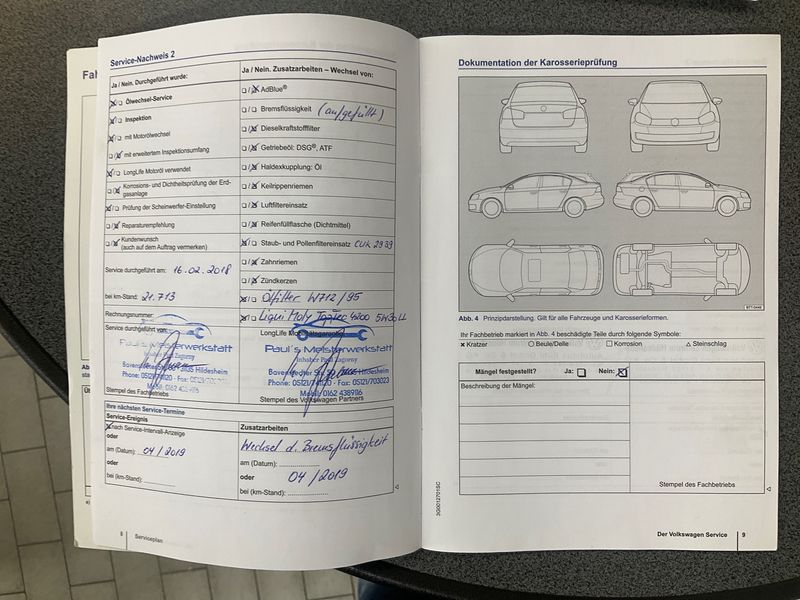 Fah
Service-Nachweis 2
Ja / Nein. Durchgeführt wurde:
☒/☐ Ölwechsel-Service
☒/☐ Inspektion
☒/☐ mit Motorölwechsel
☐/☒ mit erweitertem Inspektionsumfang
☒/☐ LongLife Motoröl verwendet
☐/☒ Korrosions- und Dichtheitsprüfung der Erd-
gasanlage
☒/☐ Prüfung der Scheinwerfer-Einstellung
☐/☒ Reparaturempfehlung
☐/☒ Kundenwunsch
(auch auf dem Auftrag vermerken)
Service durchgeführt am: 16.02.2018
bei km-Stand: 21.713
Rechnungsnummer:
Service durchgeführt von:
Paul's Meisterwerkstatt
Inhaber Paul
Stempel des Fachbetriebs
Ja / Nein. Zusatzarbeiten – Wechsel von:
☐/☒ AdBlue®
☐/☐ Bremsflüssigkeit (aufgefüllt)
☐/☒ Dieselkraftstofffilter
☐/☒ Getriebeöl: DSG®, ATF
☐/☒ Haldexkupplung: Öl
☐/☒ Keilrippenriemen
☐/☒ Luftfiltereinsatz
☐/☒ Reifenfüllflasche (Dichtmittel)
☒/☐ Staub- und Pollenfiltereinsatz CUK 2939
☐/☒ Zahnriemen
☐/☒ Zündkerzen
☒/☐ Ölfilter W712/95
☒/☐ Liqui Moly TopTec 4200 5W30 LL
LongLife
Paul's Meisterwerkstatt
Inhaber Paul
Phone: 05121/741120 · Fax: 05121/703023
Mobil: 0162 4389116
Stempel des Volkswagen Partners
Ihre nächsten Service-Termine
Service-Ereignis
☒ nach Service-Intervall-Anzeige
oder
am (Datum): 04/2019
oder
bei (km-Stand):
Zusatzarbeiten
Wechsel d. Bremsflüssigkeit
am (Datum):
oder 04/2019
bei (km-Stand):
8 Serviceplan
Dokumentation der Karosserieprüfung
Abb. 4 Prinzipdarstellung. Gilt für alle Fahrzeuge und Karosserieformen.
Ihr Fachbetrieb markiert in Abb. 4 beschädigte Teile durch folgende Symbole:
× Kratzer ○ Beule/Delle □ Korrosion △ Steinschlag
Mängel festgestellt? Ja: ☐ Nein: ☒
Beschreibung der Mängel:
Stempel des Fachbetriebs
3G0012701SC
Der Volkswagen Service 9